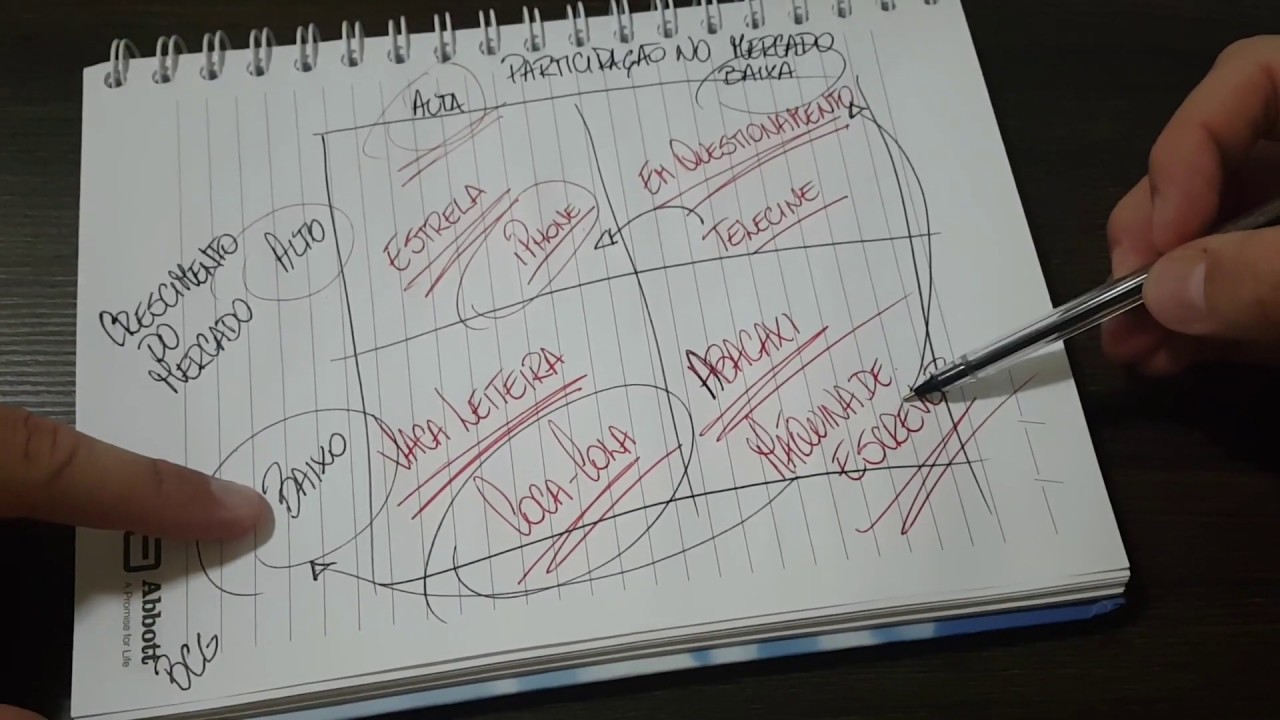 PARTICIPAÇÃO NO MERCADO
ALTA
BAIXA
CRESCIMENTO
DO
MERCADO
ALTO
ESTRELA
IPHONE
EM QUESTIONAMENTO
TENECINE
BAIXO
VACA LEITEIRA
COCA-COLA
ABACAXI
MÁQUINA DE
ESCREVER
Abbott
A Promise for Life
BCG